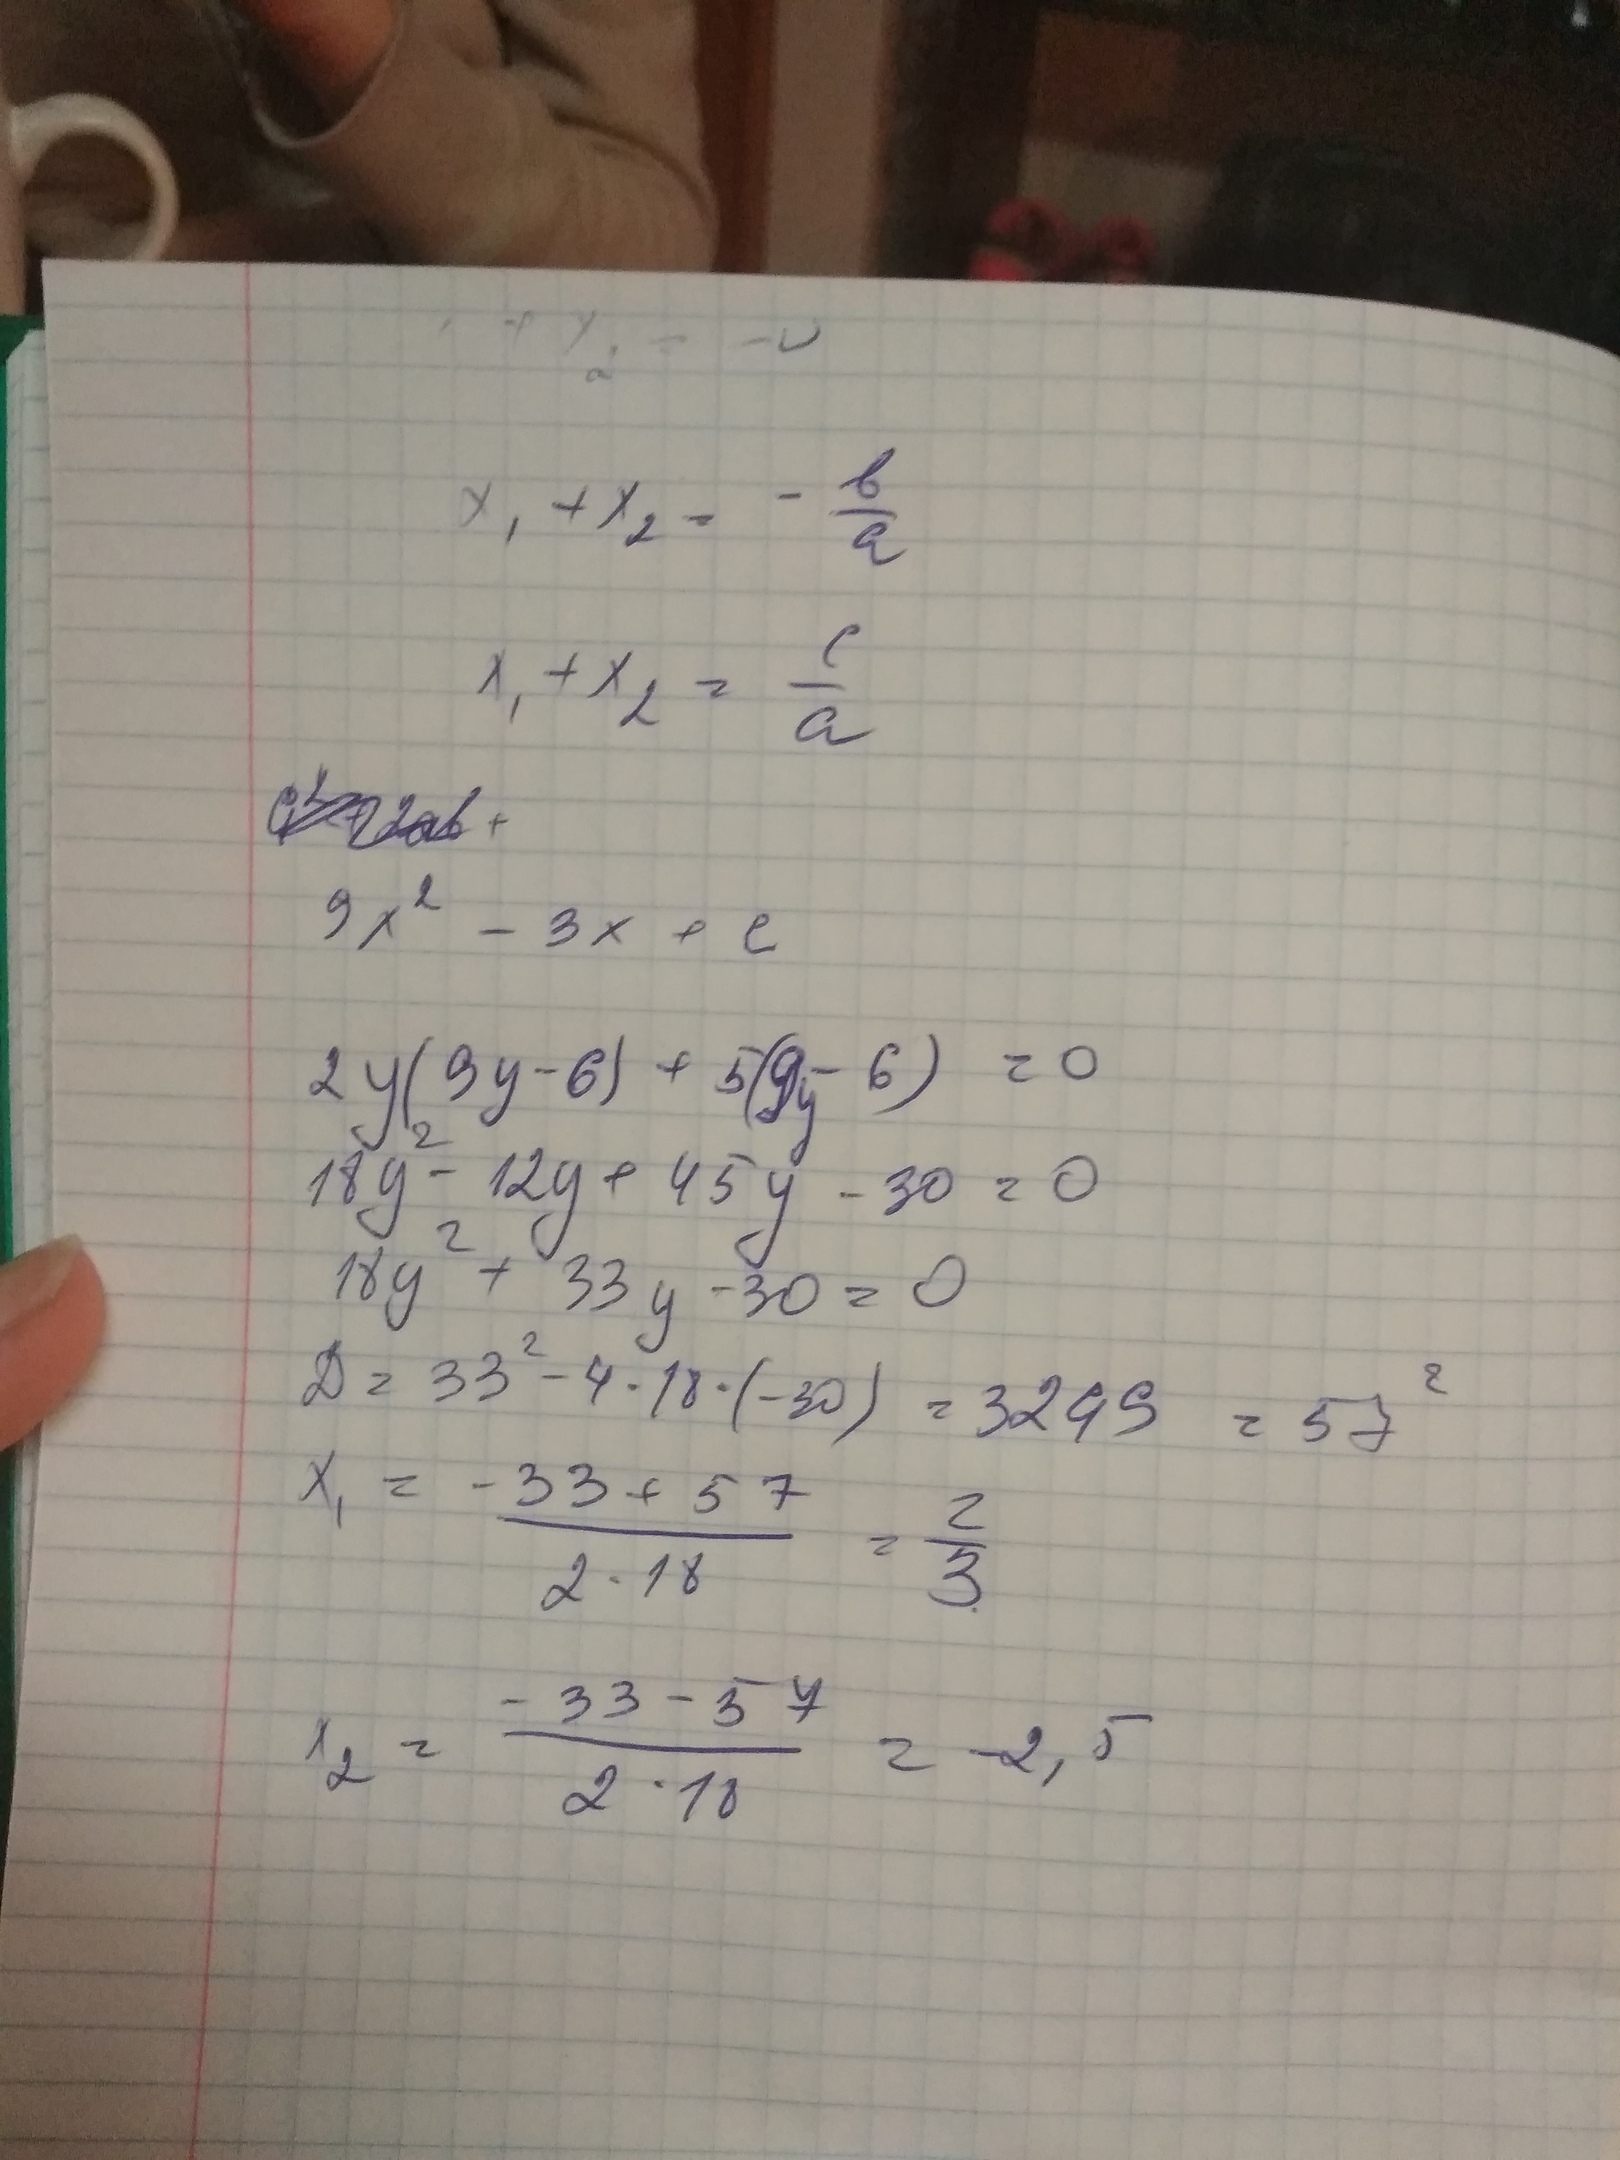 x₁ + x₂ = - b/a
x₁ + x₂ = c/a
9x² - 3x + c
2y(9y-6) + 5(9y-6) = 0
18y² - 12y + 45y - 30 = 0
18y² + 33y - 30 = 0
D = 33² - 4·18·(-30) = 3249 = 57²
x₁ = (-33 + 57)/(2·18) = 2/3
x₂ = (-33 - 57)/(2·18) = -2,5